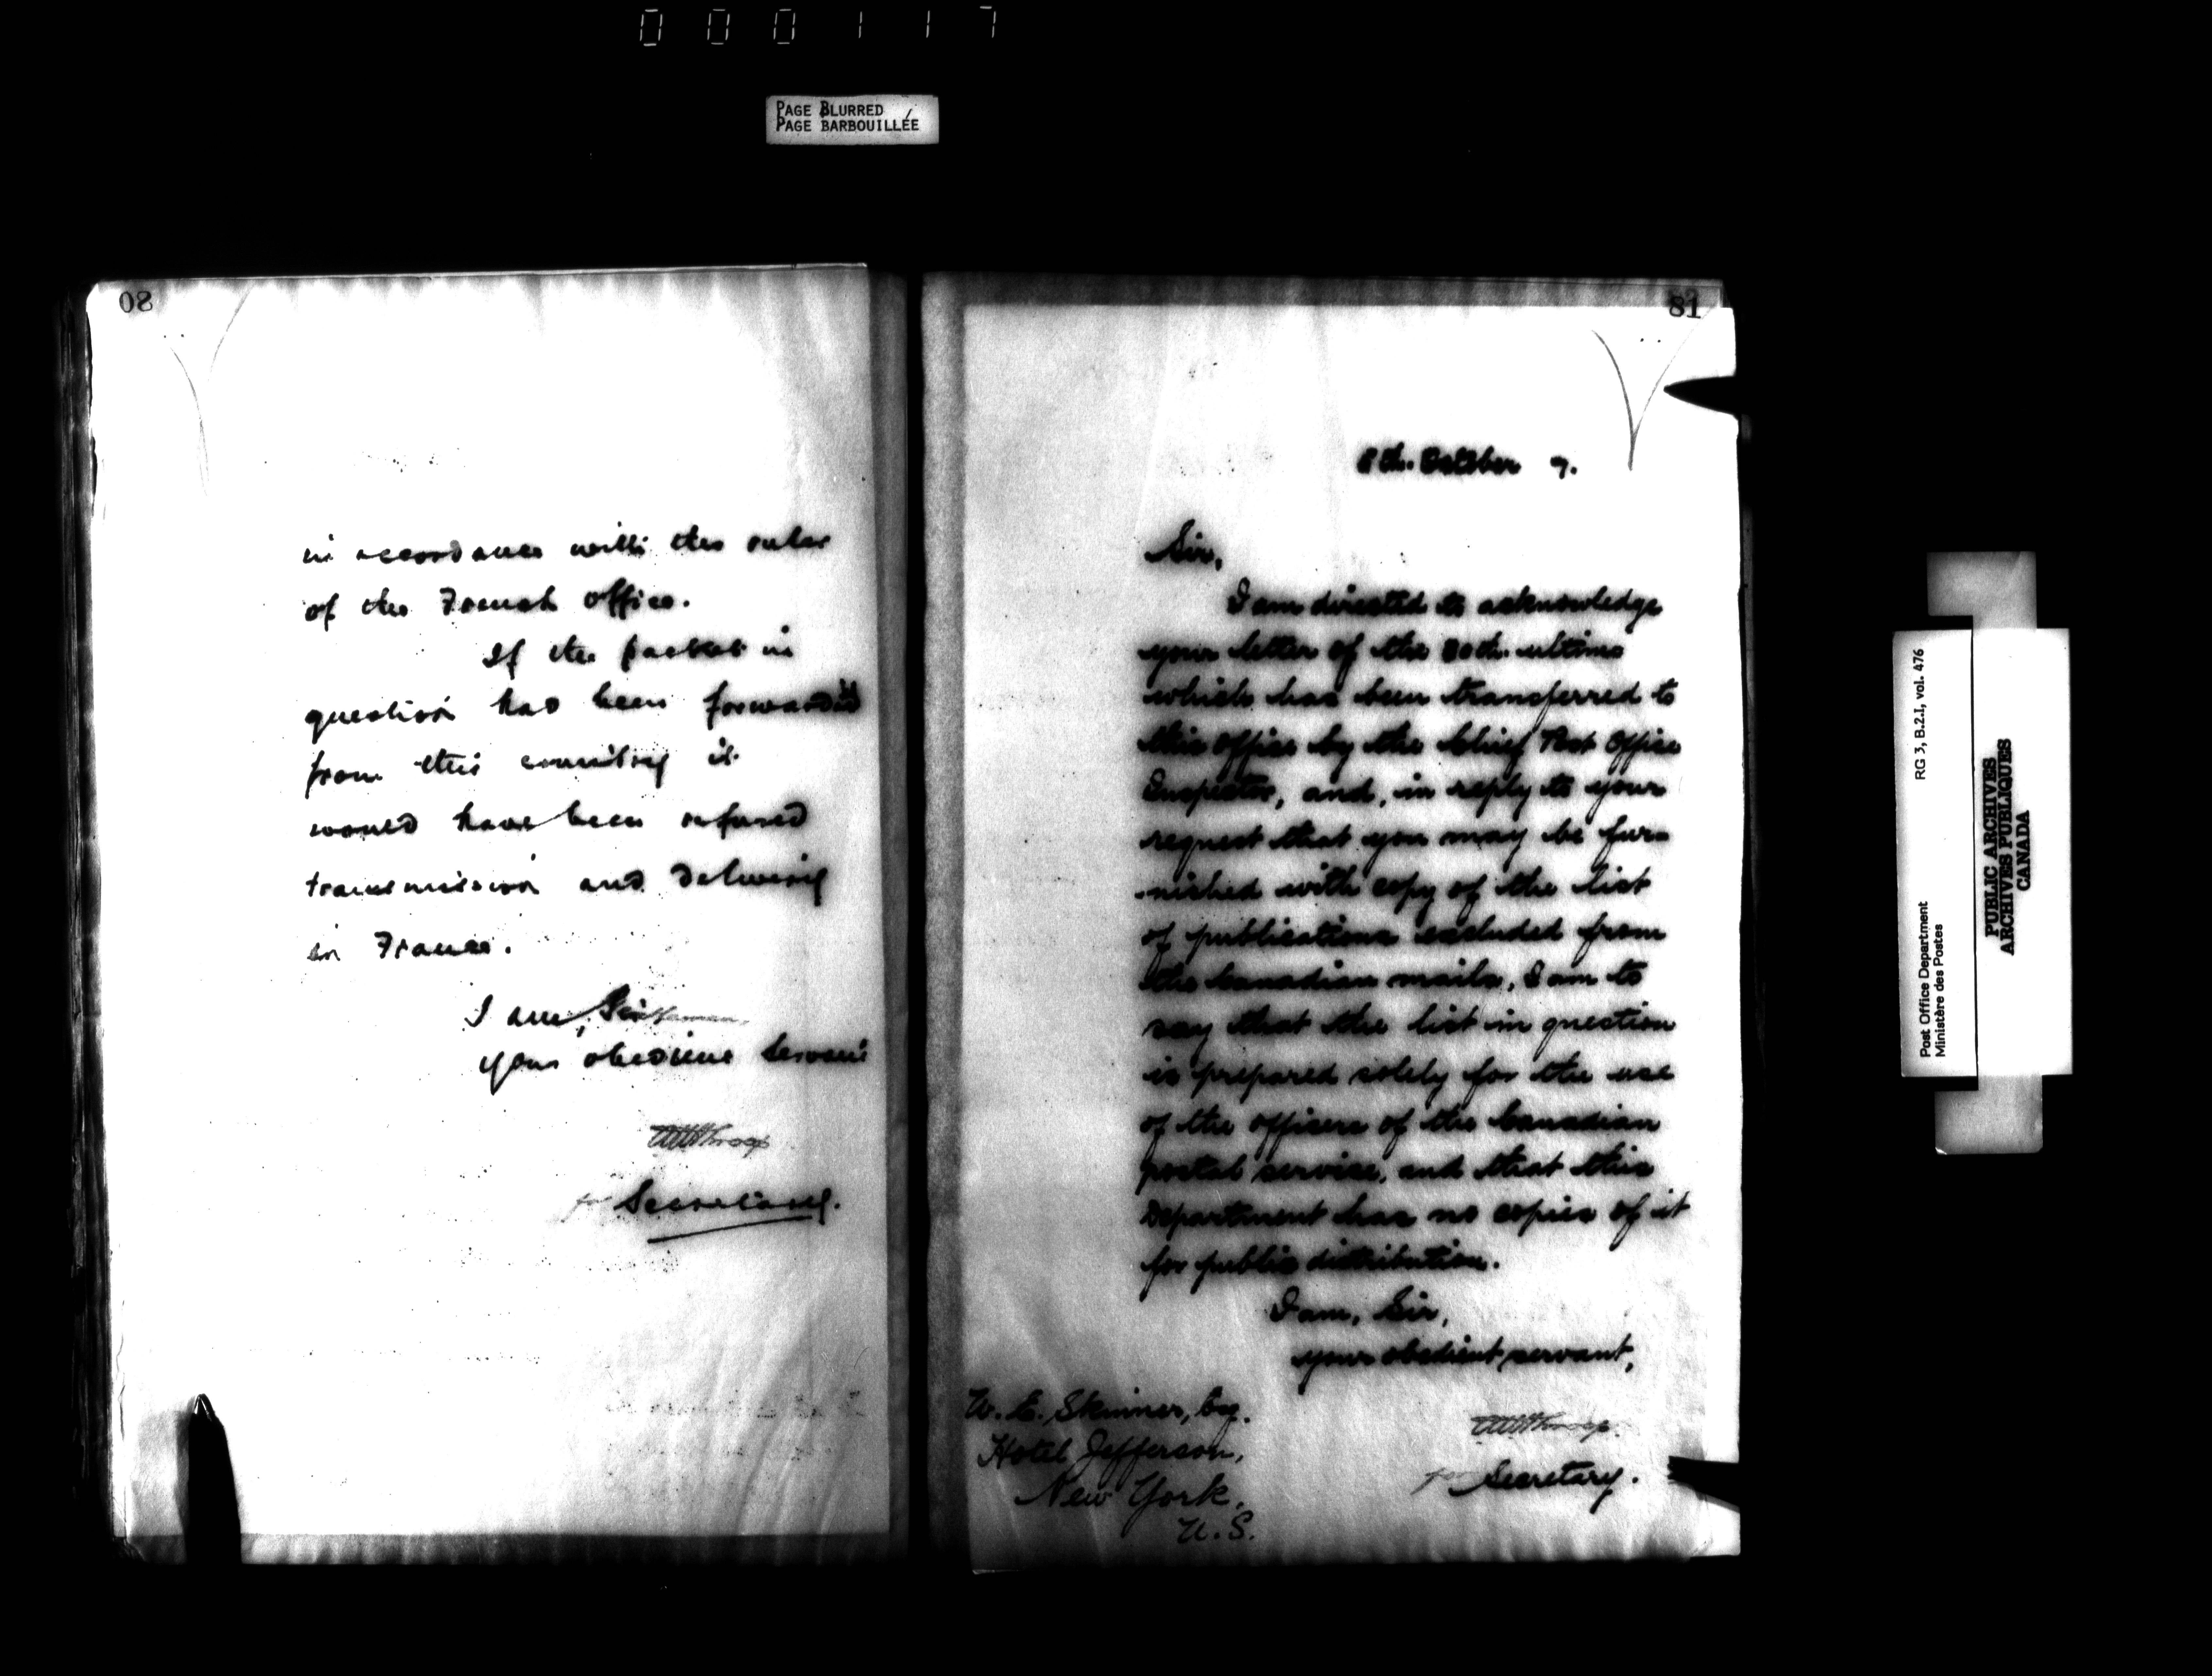 000117
PAGE BLURRED
PAGE BARBOUILLÉE
80
in accordance with the rules
of the French office.
If the packet in
question had been forwarded
from this country it
would have been refused
transmission and delivery
in France.
I am, Sir
your obedient servant
for Secretary.
81
8th. October 7.
Sir,
I am directed to acknowledge
your letter of the 30th. ultimo
which has been transferred to
this office by the Chief Post Office
Inspector, and, in reply to your
request that you may be fur-
nished with copy of the list
of publications excluded from
the Canadian mails, I am to
say that the list in question
is prepared solely for the use
of the officers of the Canadian
postal service, and that this
Department has no copies of it
for public distribution.
I am, Sir,
your obedient servant,
for Secretary.
W. E. Skinner, Esq.
Hotel Jefferson,
New York,
U.S.
RG 3, B.2.I, vol. 476
Post Office Department
Ministère des Postes
PUBLIC ARCHIVES
ARCHIVES PUBLIQUES
CANADA